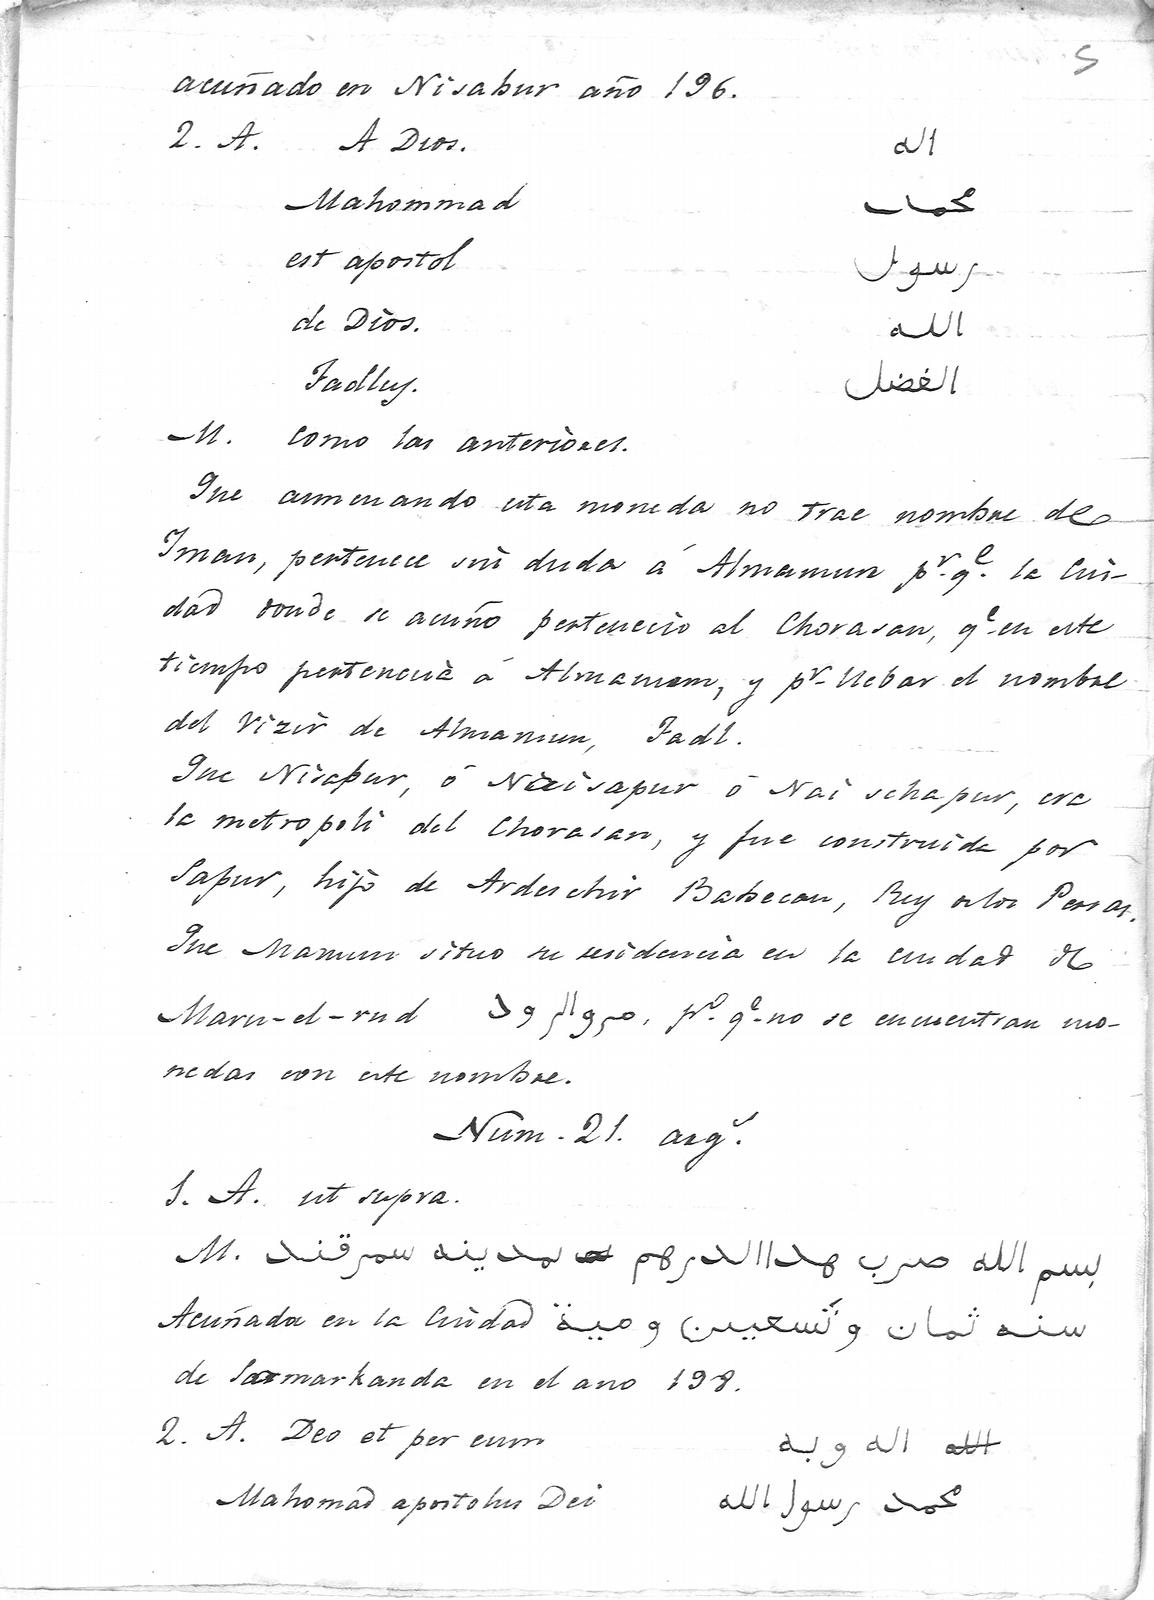 5
acuñado en Nisabur año 196.
2. A. A Dios. اله
Mahommad محمد
est apostol رسول
de Dios. الله
Fadluy. الفضل
M. Como las anteriores.
Que aunenando esta moneda no trae nombre de
Iman, pertenece sin duda á Almamun pr. qe. la Ciu-
dad donde se acuño perteneció al Chorasan, qe en este
tiempo pertenecia á Almamum, y pr. llebar el nombre
del Vizir de Almamun, Fadl.
Que Nisapur, ó Naisapur ó Nai schapur, era
la metropoli del Chorasan, y fue construida por
Sapur, hijo de Ardeschir Babecan, Rey de los Persas.
Que Mamun situo su residencia en la ciudad de
Maru-el-rud مروالرود, po. qe. no se encuentran mo-
nedas con este nombre.
Num. 21. argo.
1. A. ut supra.
M. بسم الله صرب هداالدرهم بمدينه سمرقند
Acuñada en la Ciudad سنه ثمان وتسعين ومية
de Sarmarkanda en el ano 198.
2. A. Deo et per eum الله اله وبه
Mahomad apostolus Dei محمد رسول الله